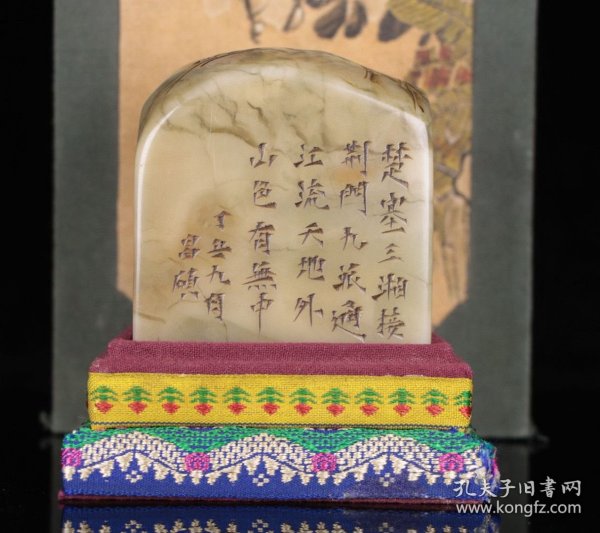 楚塞三湘接
荆門九派通
江流天地外
山色有無中
丁丑九月
昌碩
孔夫子旧書网
www.kongfz.com